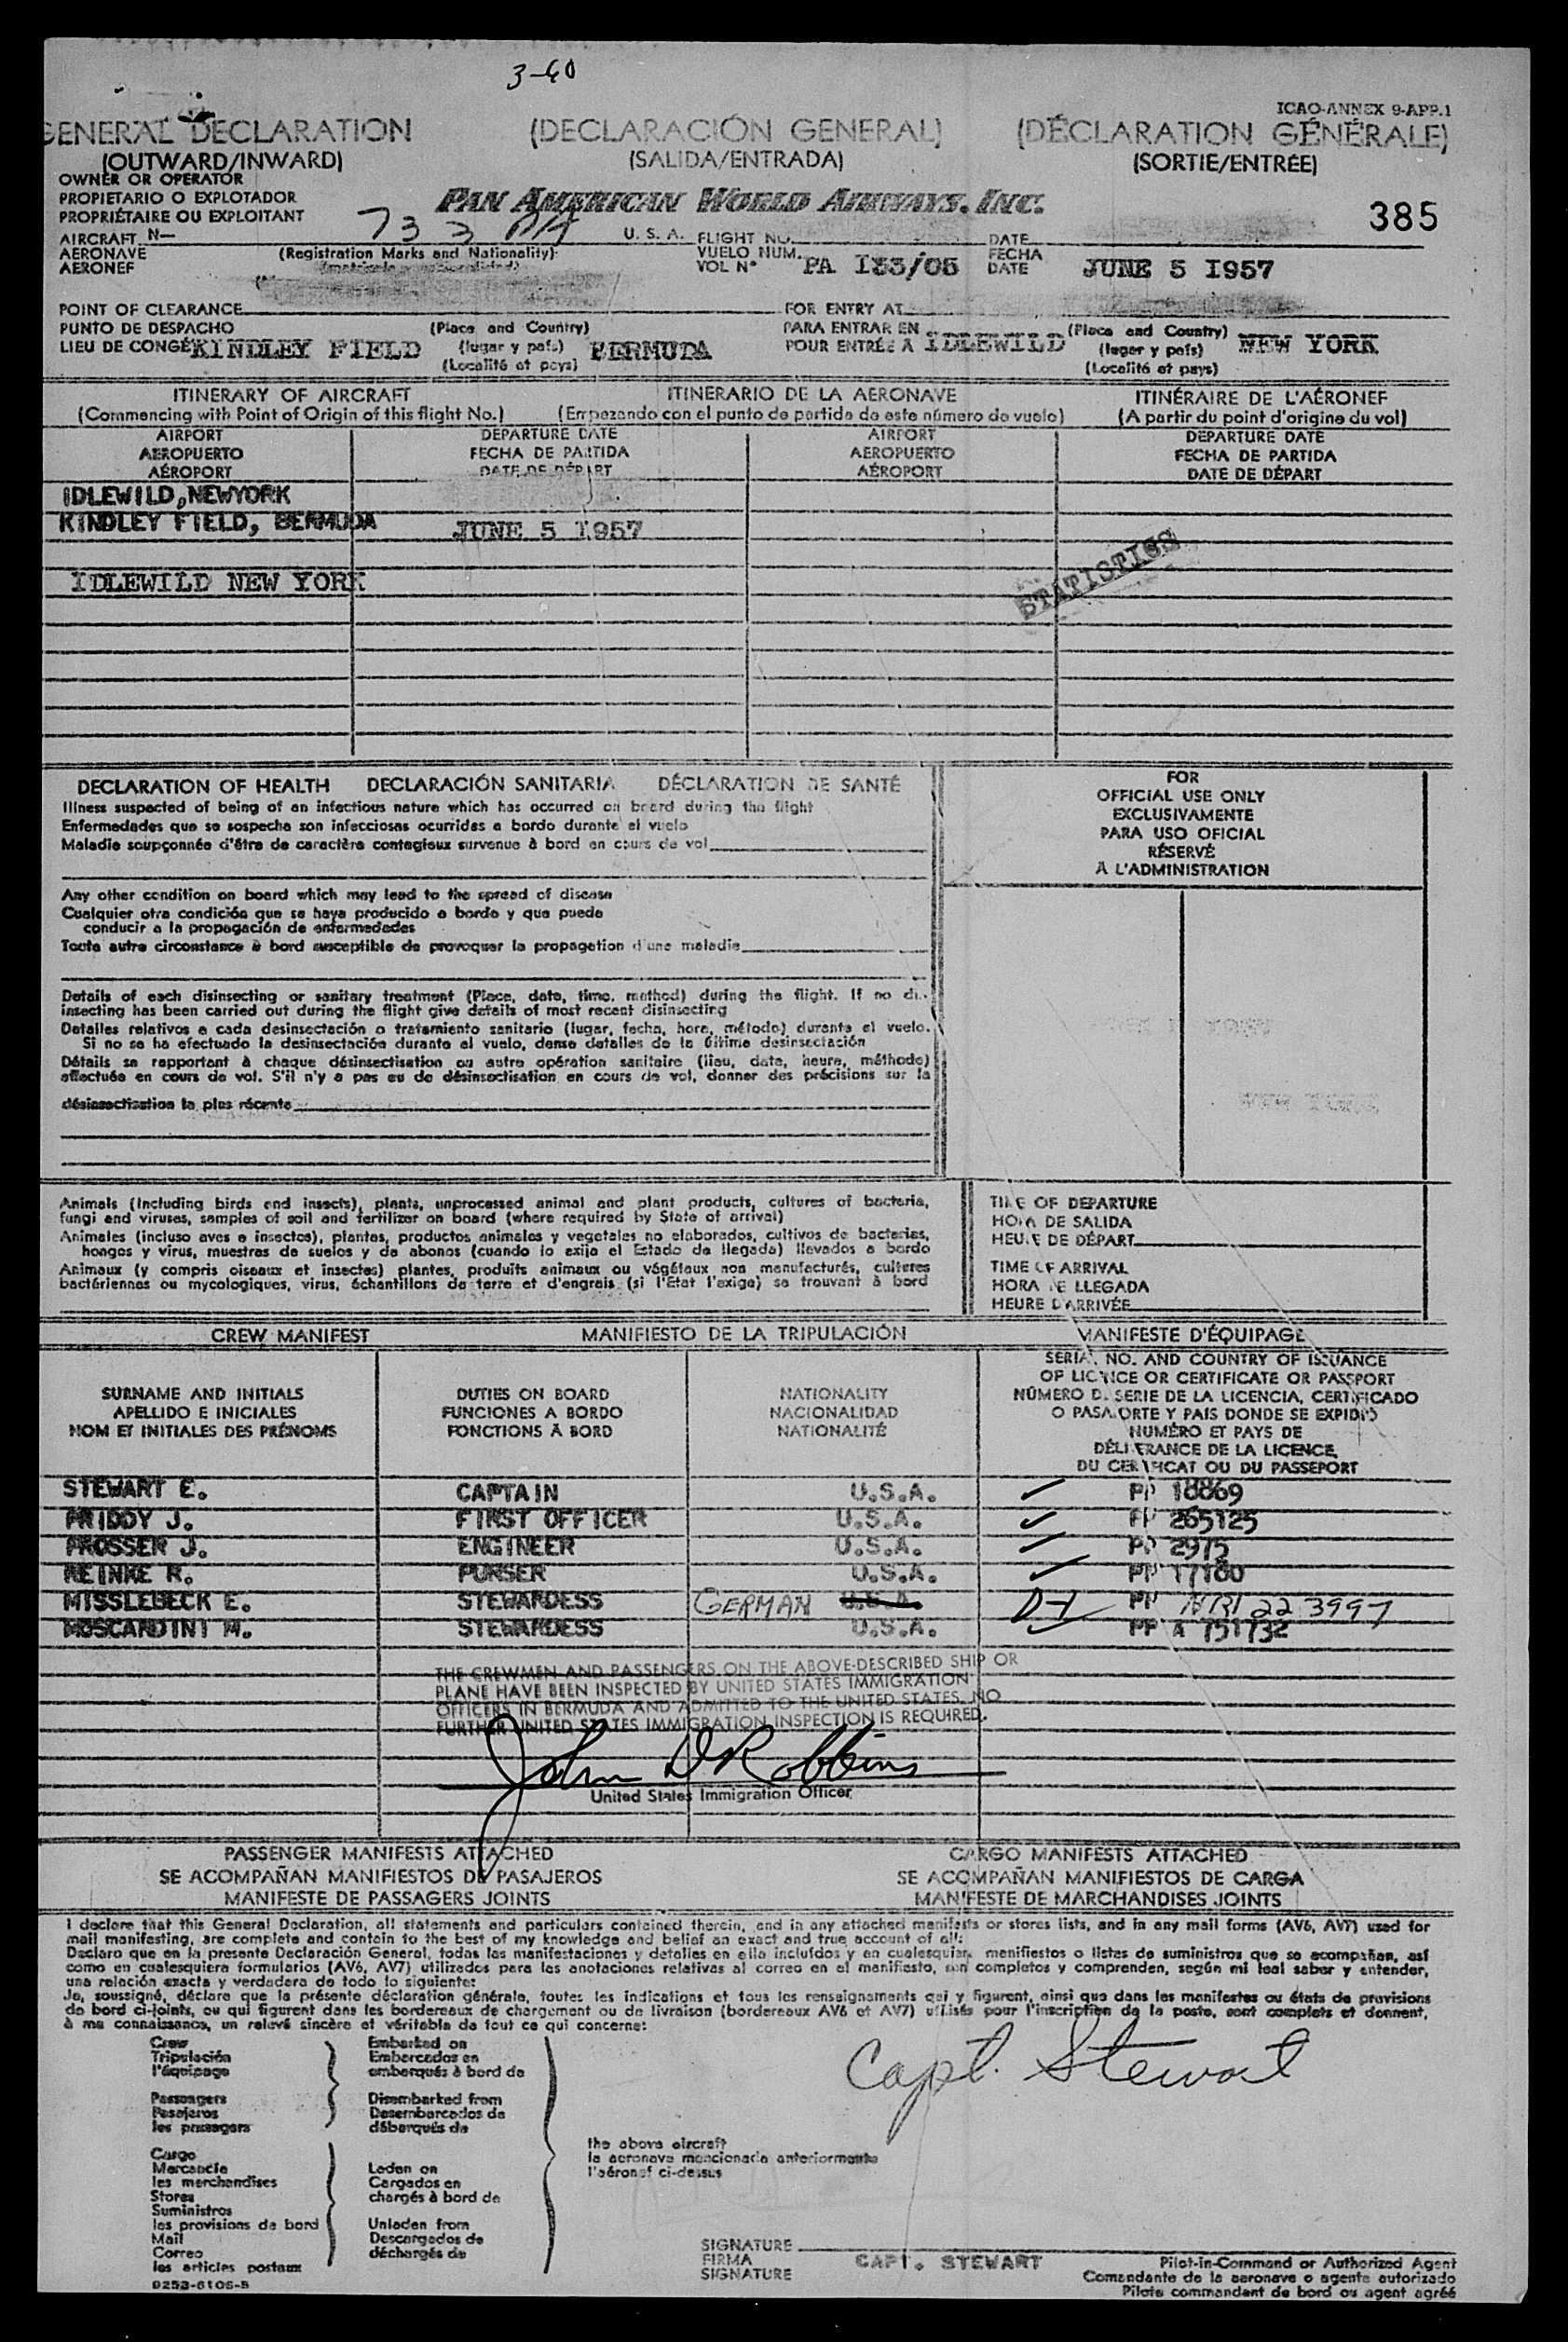 3-60
ICAO-ANNEX 9-APP.1
GENERAL DECLARATION (DECLARACIÓN GENERAL) (DÉCLARATION GÉNÉRALE)
(OUTWARD/INWARD) (SALIDA/ENTRADA) (SORTIE/ENTRÉE)
OWNER OR OPERATOR
PROPIETARIO O EXPLOTADOR PAN AMERICAN WORLD AIRWAYS, INC.
PROPRIÉTAIRE OU EXPLOITANT 385
AIRCRAFT N— 733 PA U. S. A. FLIGHT NO. DATE
AERONAVE (Registration Marks and Nationality) VUELO NUM. FECHA
AERONEF VOL N° PA 133/05 DATE JUNE 5 1957
POINT OF CLEARANCE FOR ENTRY AT
PUNTO DE DESPACHO (Place and Country) PARA ENTRAR EN (Place and Country)
LIEU DE CONGÉ KINDLEY FIELD (lugar y país) BERMUDA POUR ENTRÉE À IDLEWILD (lugar y país) NEW YORK
(Localité et pays) (Localité et pays)
ITINERARY OF AIRCRAFT ITINERARIO DE LA AERONAVE ITINÉRAIRE DE L'AÉRONEF
(Commencing with Point of Origin of this flight No.) (Empezando con el punto de partida de este número de vuelo) (A partir du point d'origine du vol)
AIRPORT DEPARTURE DATE AIRPORT DEPARTURE DATE
AEROPUERTO FECHA DE PARTIDA AEROPUERTO FECHA DE PARTIDA
AÉROPORT DATE DE DÉPART AÉROPORT DATE DE DÉPART
IDLEWILD, NEWYORK
KINDLEY FIELD, BERMUDA JUNE 5 1957
STATISTICS
IDLEWILD NEW YORK
DECLARATION OF HEALTH DECLARACIÓN SANITARIA DÉCLARATION DE SANTÉ
Illness suspected of being of an infectious nature which has occurred on board during the flight
Enfermedades que se sospecha son infecciosas ocurridas a bordo durante el vuelo
Maladie soupçonnée d'être de caractère contagieux survenue à bord en cours de vol
Any other condition on board which may lead to the spread of disease
Cualquier otra condición que se haya producido a bordo y que pueda
conducir a la propagación de enfermedades
Toute autre circonstance à bord susceptible de provoquer la propagation d'une maladie
Details of each disinsecting or sanitary treatment (Place, date, time, method) during the flight. If no dis-
insecting has been carried out during the flight give details of most recent disinsecting
Detalles relativos a cada desinsectación o tratamiento sanitario (lugar, fecha, hora, método) durante el vuelo.
Si no se ha efectuado la desinsectación durante el vuelo, dense detalles de la última desinsectación
Détails se rapportant à chaque désinsectisation ou autre opération sanitaire (lieu, date, heure, méthode)
effectuée en cours de vol. S'il n'y a pas eu de désinsectisation en cours de vol, donner des précisions sur la
désinsectisation la plus récente
FOR
OFFICIAL USE ONLY
EXCLUSIVAMENTE
PARA USO OFICIAL
RÉSERVÉ
À L'ADMINISTRATION
NEW YORK
Animals (Including birds and insects), plants, unprocessed animal and plant products, cultures of bacteria,
fungi and viruses, samples of soil and fertilizer on board (where required by State of arrival)
Animales (incluso aves e insectos), plantas, productos animales y vegetales no elaborados, cultivos de bacterias,
hongos y virus, muestras de suelos y de abonos (cuando lo exija el Estado de llegada) llevados a bordo
Animaux (y compris oiseaux et insectes) plantes, produits animaux ou végétaux non manufacturés, cultures
bactériennes ou mycologiques, virus, échantillons de terre et d'engrais (si l'Etat l'exige) se trouvant à bord
TIME OF DEPARTURE
HORA DE SALIDA
HEURE DE DÉPART
TIME OF ARRIVAL
HORA DE LLEGADA
HEURE D'ARRIVÉE
CREW MANIFEST MANIFIESTO DE LA TRIPULACIÓN MANIFESTE D'ÉQUIPAGE
SURNAME AND INITIALS
APELLIDO E INICIALES
NOM ET INITIALES DES PRÉNOMS
DUTIES ON BOARD
FUNCIONES A BORDO
FONCTIONS À BORD
NATIONALITY
NACIONALIDAD
NATIONALITÉ
SERIAL NO. AND COUNTRY OF ISSUANCE
OF LICENCE OR CERTIFICATE OR PASSPORT
NÚMERO DE SERIE DE LA LICENCIA, CERTIFICADO
O PASAPORTE Y PAIS DONDE SE EXPIDIÓ
NUMÉRO ET PAYS DE
DÉLIVRANCE DE LA LICENCE,
DU CERTIFICAT OU DU PASSEPORT
STEWART E. CAPTAIN U.S.A. PP 18869
PRIDDY J. FIRST OFFICER U.S.A. PP 265125
PROSSER J. ENGINEER U.S.A. PP 2975
REINKE R. PURSER U.S.A. PP 17180
MISSLEBECK E. STEWARDESS GERMAN U.S.A. D-1 PP NR1 223997
MOSCARDINI M. STEWARDESS U.S.A. PP A 751732
THE CREWMEN AND PASSENGERS ON THE ABOVE-DESCRIBED SHIP OR
PLANE HAVE BEEN INSPECTED BY UNITED STATES IMMIGRATION
OFFICERS IN BERMUDA AND ADMITTED TO THE UNITED STATES. NO
FURTHER UNITED STATES IMMIGRATION INSPECTION IS REQUIRED.
John D Robbins
United States Immigration Officer
PASSENGER MANIFESTS ATTACHED CARGO MANIFESTS ATTACHED
SE ACOMPAÑAN MANIFIESTOS DE PASAJEROS SE ACOMPAÑAN MANIFIESTOS DE CARGA
MANIFESTE DE PASSAGERS JOINTS MANIFESTE DE MARCHANDISES JOINTS
I declare that this General Declaration, all statements and particulars contained therein, and in any attached manifests or stores lists, and in any mail forms (AV6, AV7) used for
mail manifesting, are complete and contain to the best of my knowledge and belief an exact and true account of all:
Declaro que en la presente Declaración General, todas las manifestaciones y detalles en ella incluídos y en cualesquiera manifiestos o listas de suministros que se acompañan, así
como en cualesquiera formularios (AV6, AV7) utilizados para las anotaciones relativas al correo en el manifiesto, son completos y comprenden, según mi leal saber y entender,
una relación exacta y verdadera de todo lo siguiente:
Je, soussigné, déclare que la présente déclaration générale, toutes les indications et tous les renseignements qui y figurent, ainsi que dans les manifestes ou états de provisions
de bord ci-joints, ou qui figurent dans les bordereaux de chargement ou de livraison (bordereaux AV6 et AV7) utilisés pour l'inscription de la poste, sont complets et donnent,
à ma connaissance, un relevé sincère et véritable de tout ce qui concerne:
Crew Embarked on
Tripulación Embarcados en
l'équipage embarqués à bord de
Capt. Stewart
Passengers Disembarked from
Pasajeros Desembarcados de
les passagers débarqués de
the above aircraft
la aeronave mencionada anteriormente
l'aéronef ci-dessus
Cargo
Mercancía Laden on
les marchandises Cargados en
Stores chargés à bord de
Suministros
les provisions de bord Unladen from
Mail Descargados de
Correo déchargés de
les articles postaux
9253-6106-5
SIGNATURE
FIRMA CAPT. STEWART
SIGNATURE
Pilot-in-Command or Authorized Agent
Comandante de la aeronave o agente autorizado
Pilote commandant de bord ou agent agréé